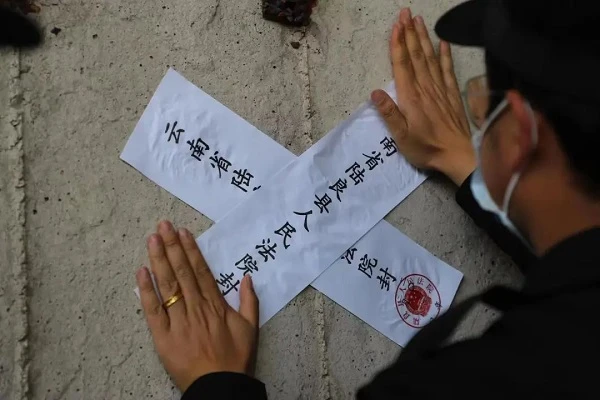 云南省陆
院封
南省陆良县人民法院封